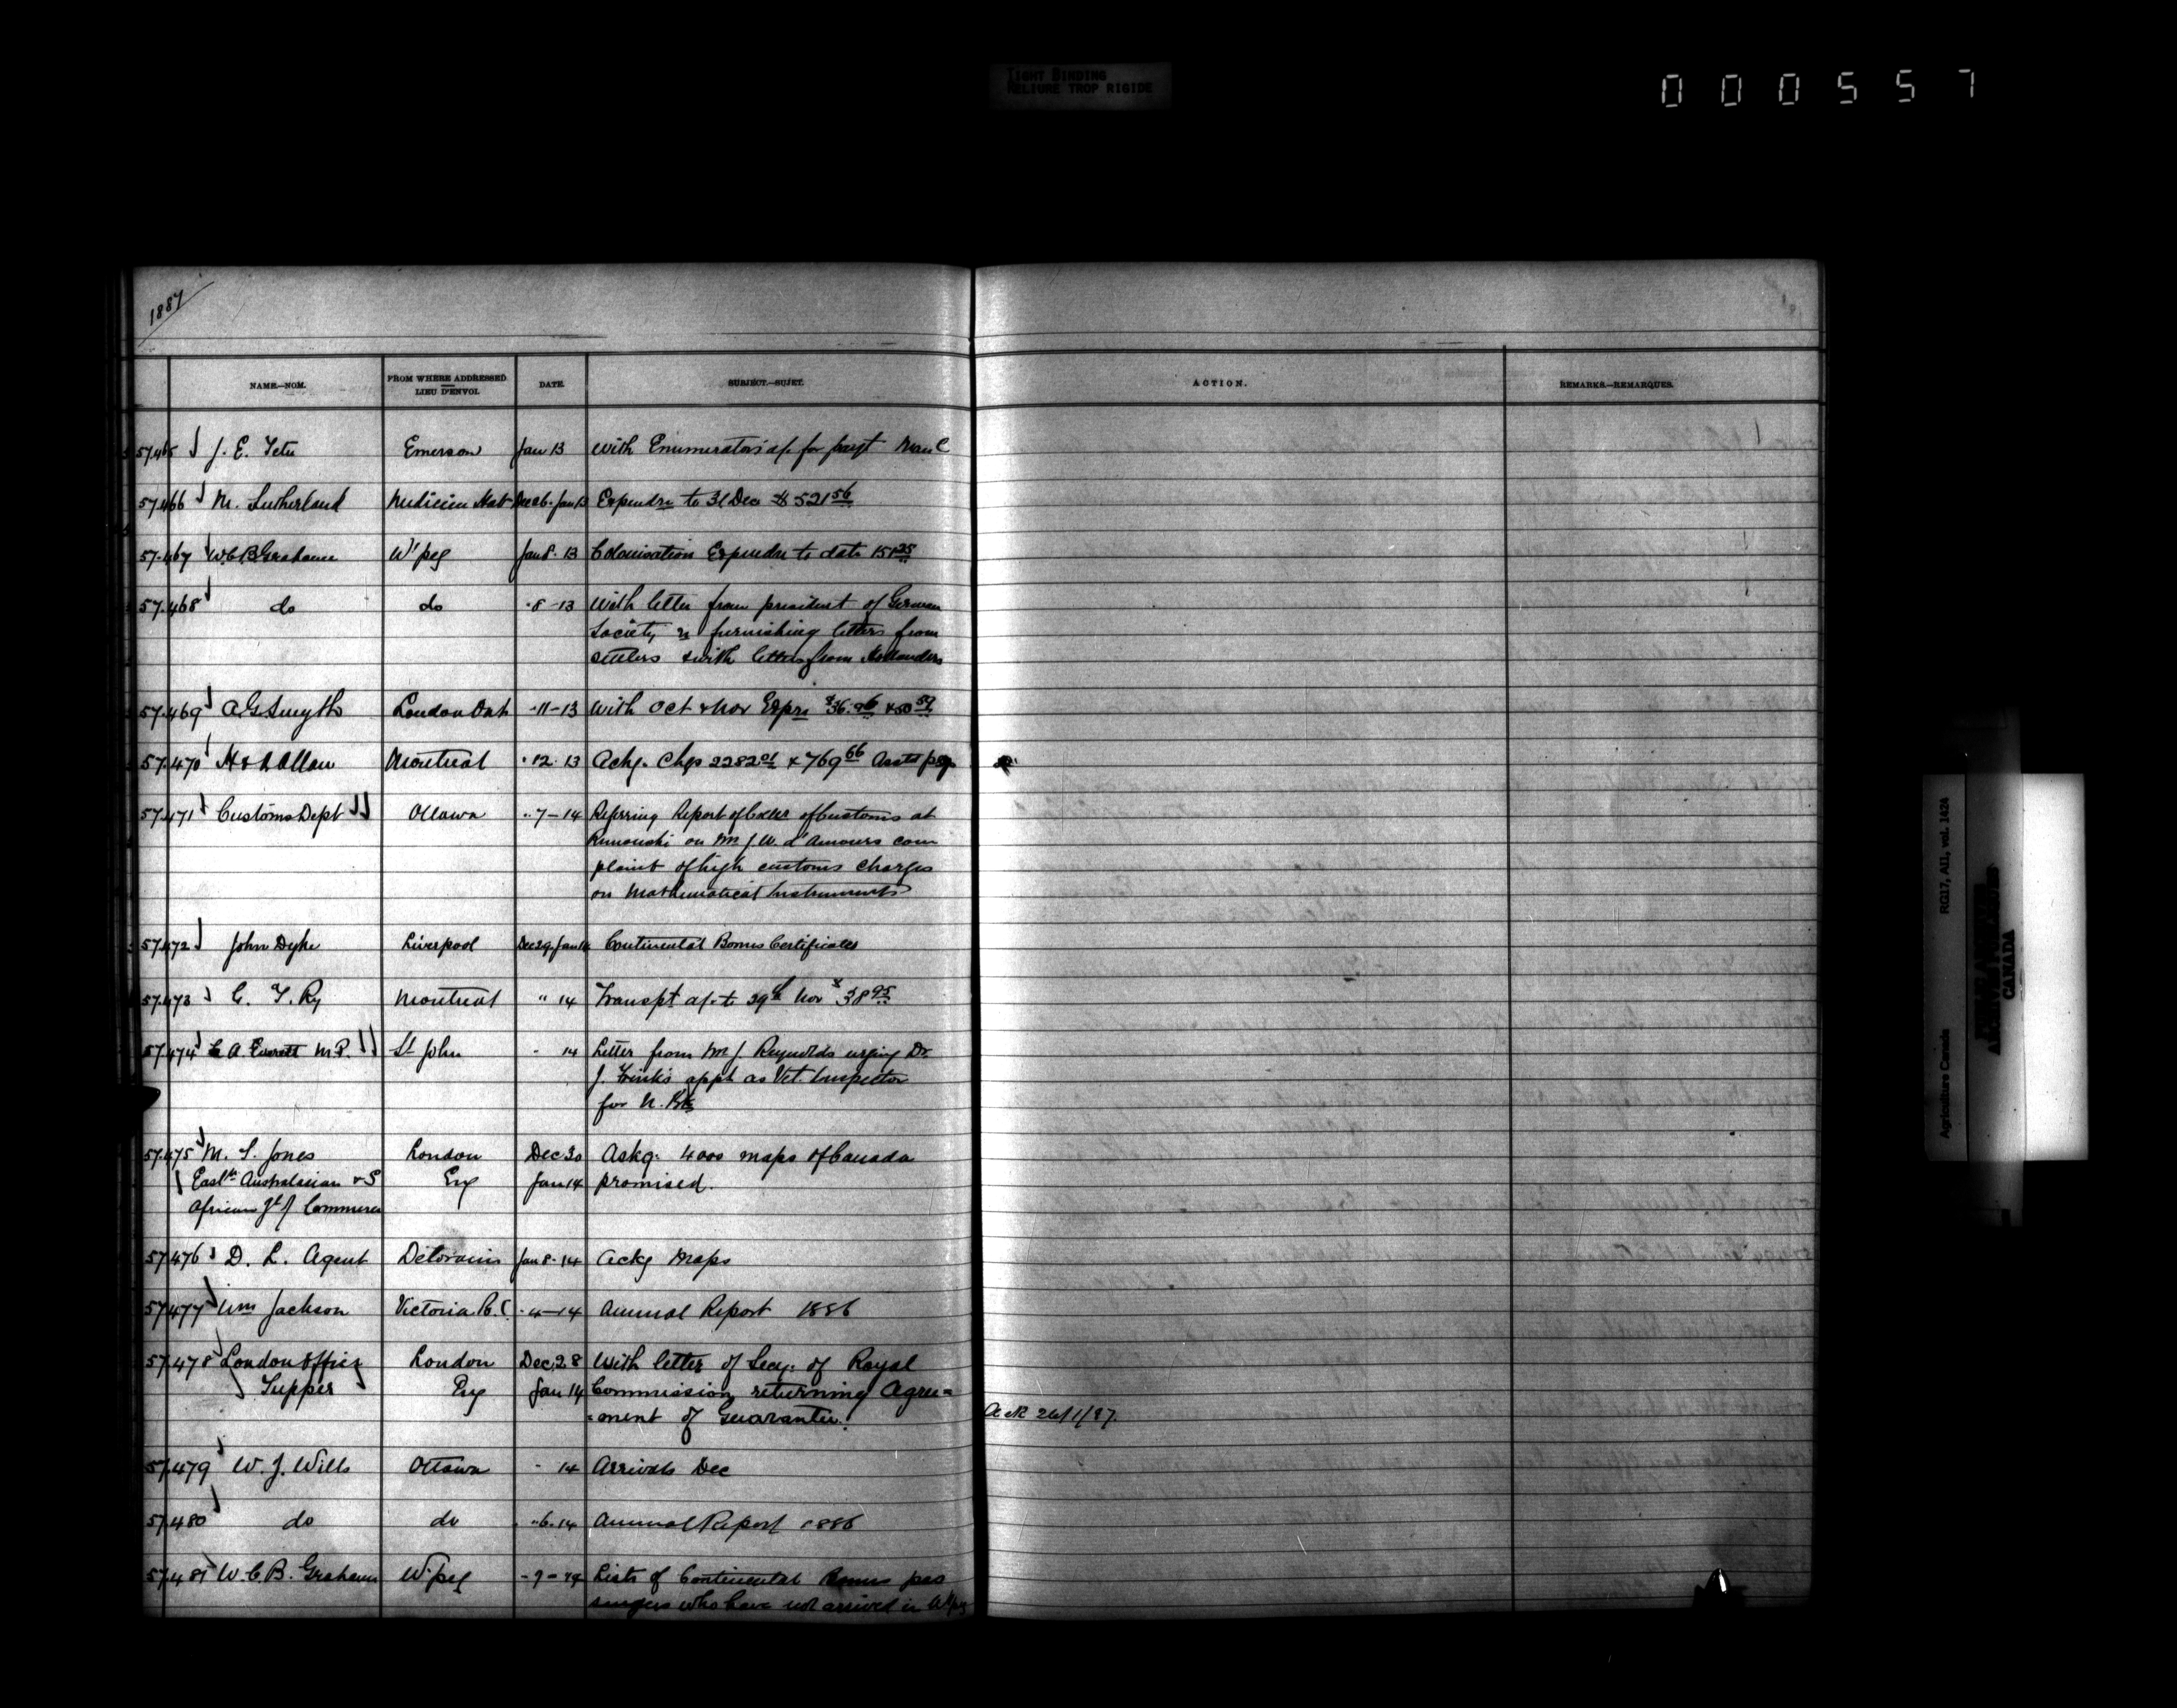 TIGHT BINDING
RELIURE TROP RIGIDE
000557
1887
NAME.—NOM. FROM WHERE ADDRESSED LIEU D'ENVOI. DATE. SUBJECT.—SUJET. ACTION. REMARKS.—REMARQUES.
57.465 J. E. Tetu Emerson Jan 13 With Enumerators a/c for payt
57.466 M. Sutherland Medicine Hat Dec 26. Jan 13 Expendre to 31 Dec $521 56
57.467 W.C.B. Grahame W'peg Jan 8. 13 Colonisation Expendre to date 151 25
57.468 do do " 8 - 13 With letter from president of German
Society re furnishing letters from
settlers & with letters from Hollanders
57.469 A. G. Smyth London Ont " 11 - 13 With Oct & Nov Expre $36.
57.470 H & A Allan Montreal " 12. 13 Ackg. Chqs 2282 01 & 769 66 Asstd psg
57.471 Customs Dept Ottawa " 7 - 14 Referring Report of Coller of Customs at
Rimouski on Mr J. W. d'Amours com
plaint of high customs charges
on Mathematical Instruments
57.472 John Dyke Liverpool Dec 29. Jan 14 Continental Bonus Certificates
57.473 G. T. Ry Montreal " 14 Transpt a/c to 29th Nov $38 95
57.474 C A Everett M.P. St John " 14 Letter from Mr J. Reynolds urging Dr.
J. Frink's appt as Vet. Inspector
for N. Bk
57.475 M. S. Jones London Dec 30 Askg. 4000 maps of Canada
East'n Australasian & S Eng Jan 14 promised.
African Jl of Commerce
57.476 D. L. Agent Deloraine Jan 8. 14 Ackg Maps
57.477 Wm Jackson Victoria B.C. " 4 - 14 Annual Report 1886
57.478 London Office London Dec. 28 With letter of Secy. of Royal
Tupper Eng Jan 14 Commission returning Agree=
=ment of Guarantee. Ack 26/1/87.
57.479 W. J. Wills Ottawa " 14 Arrivals Dec
57.480 do do " 6. 14 Annual Report 1886
57.481 W. C. B. Grahame W'peg " 9 - 14 Lists of Continental Bonus pas
sengers who have not arrived in W'peg
Agriculture Canada RG17, AII, vol. 1424
CANADA